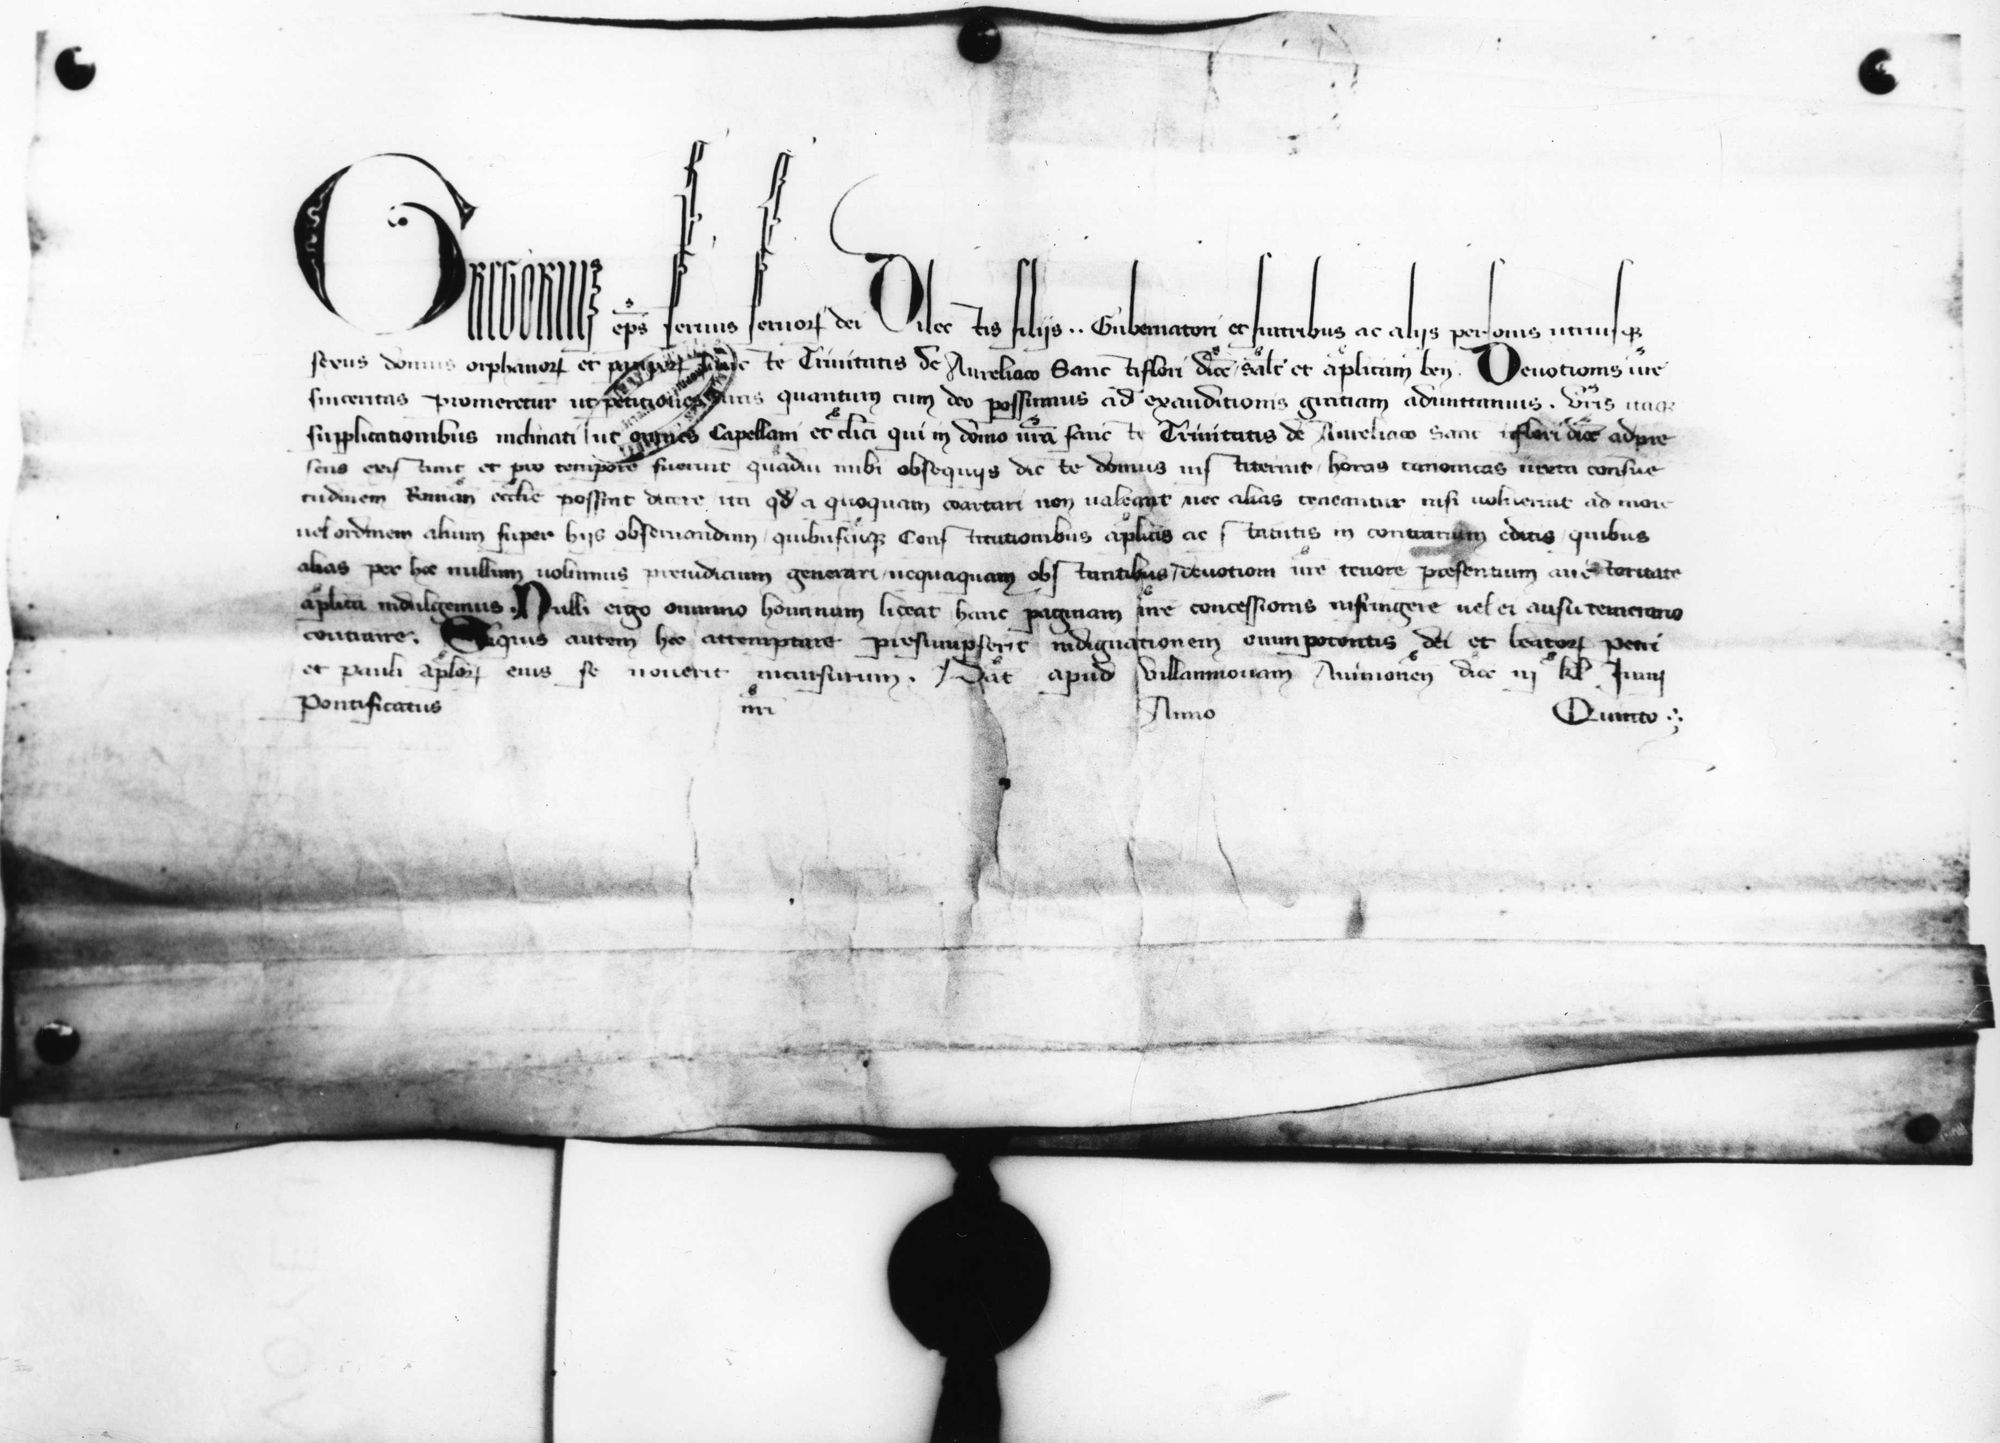 GREGORIUS ep̄s seruus seruorꝝ dei Dilectis filiis .. Gubernatori et fratribus ac aliis personis utriusqꝫ
sexus domus orphanorꝝ et pauperꝝ sancte Trinitatis de Aureliaco Sanctiflori dioc̄ salt̄ et aplicam ben̄. Deuotionis ur̄e
sinceritas promeretur ut petitiones ur̄as quantum cum deo possumus ad exauditionis gratiam admittamus. Ur̄is itaqꝫ
supplicationibus inclinati ut omnes Capellani et cl̄ici qui in domo ur̄a sancte Trinitatis de Aureliaco Sanctiflori dioc̄ ad pre
sens existunt et pro tempore fuerint quādiu inibi obsequiis dicte domus institerint horas canonicas iuxta consue
tudinem Roman̄ eccl̄ie possint dicere ita qd̄ a quoquam coartari non ualeant nec alias teneantur nisi uoluerint ad more
uel ordinem alium super hiis obseruandum quibuscūqꝫ Constitutionibus ap̄licis ac statutis in contrarium editis quibus
alias per hoc nullum uolumus preiudicium generari nequaquam obstantibus deuotioni ur̄e tenore presentium auctoritate
ap̄lica indulgemus. Nulli ergo omnino hominum liceat hanc paginam nr̄e concessionis infringere uel ei ausu temerario
contraire. Siquis autem hoc attemptare presumpserit indignationem omnipotentis dei et beatorꝝ Petri
et Pauli ap̄lorꝝ eius se nouerit incursurum. Dat̄ apud Villamnouam Auinionen̄ dioc̄ iij kl̄ Junij
Pontificatus nr̄i Anno Quinto